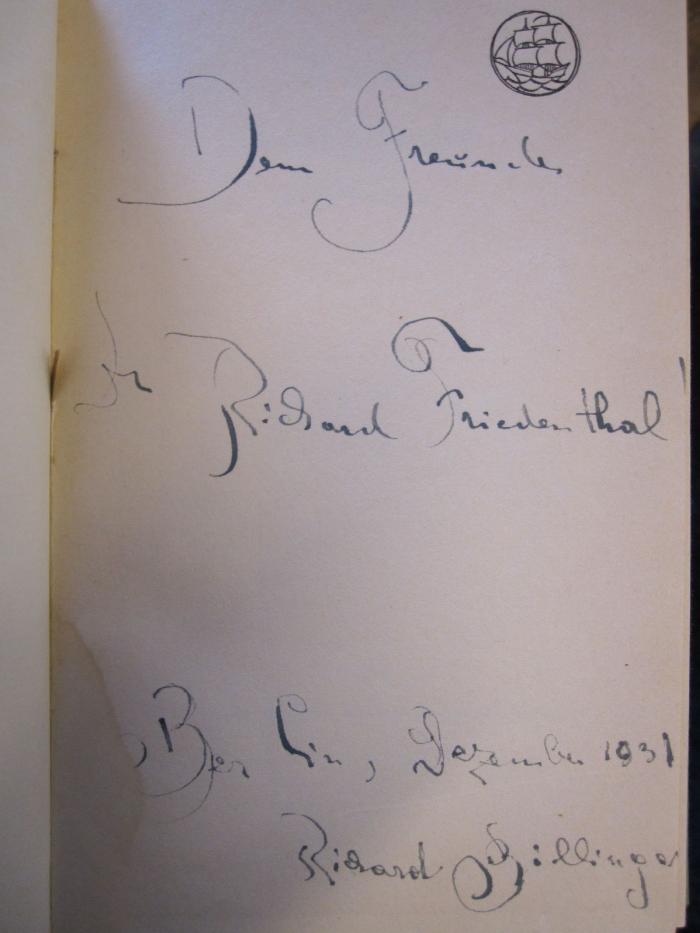 Dem Freunde
Dr Richard Friedenthal
Berlin, Dezember 1931
Richard Billinger